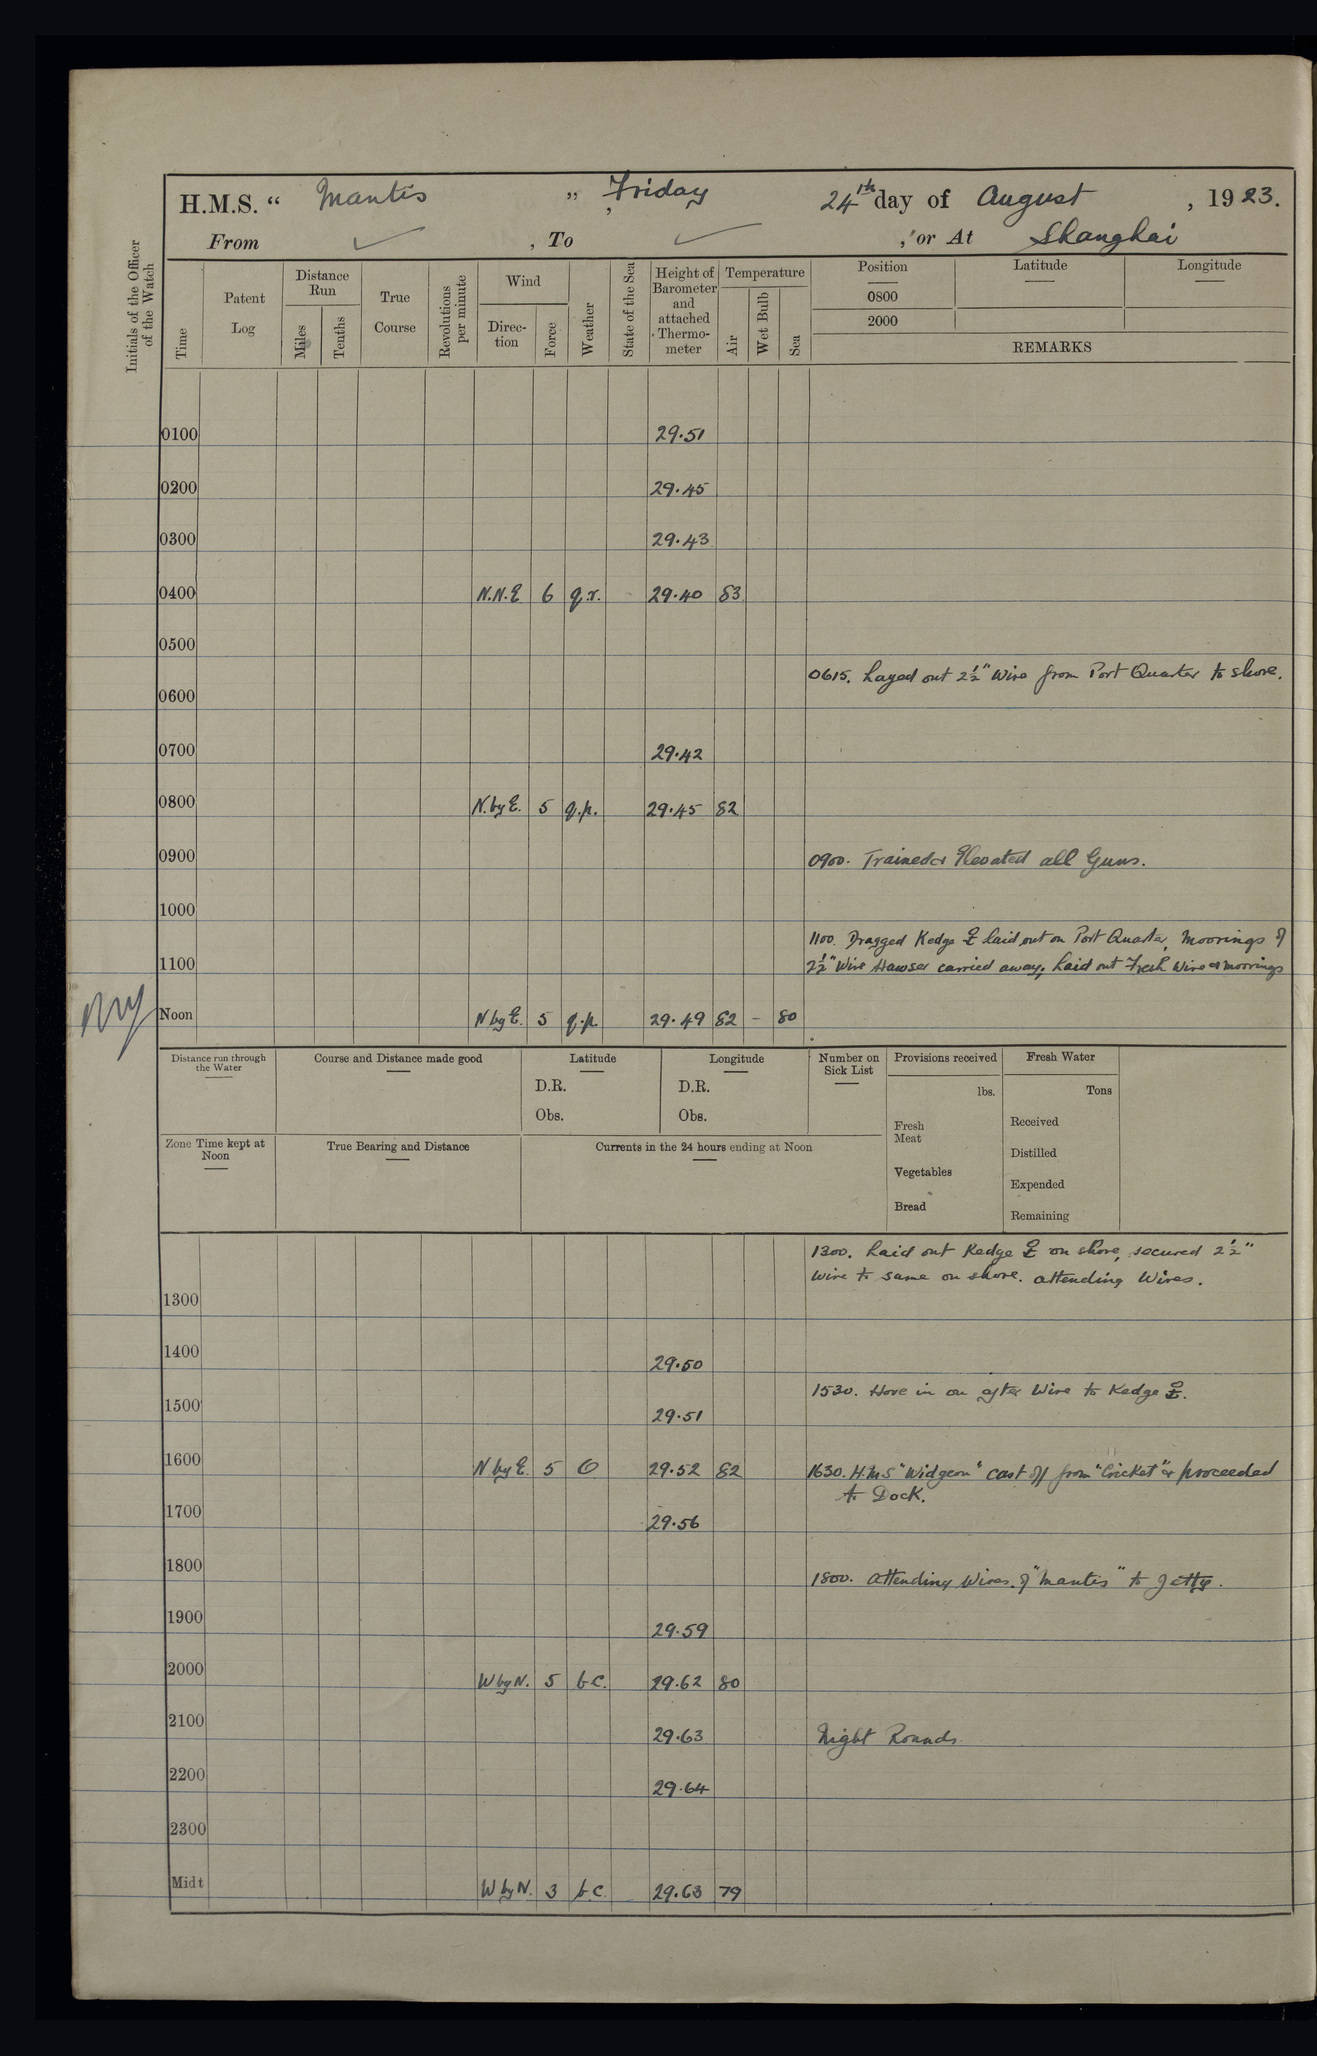 H.M.S. “ Mantis ” , Friday 24th day of August , 1923.
From ✓ , To ✓ , or At Shanghai
Initials of the Officer of the Watch
Time
Patent Log
Distance Run
Miles
Tenths
True Course
Revolutions per minute
Wind
Direc-tion
Force
Weather
State of the Sea
Height of Barometer and attached Thermo-meter
Temperature
Air
Wet Bulb
Sea
Position Latitude Longitude
0800
2000
REMARKS
0100 29.51
0200 29.45
0300 29.43
0400 N.N.E 6 q.r. 29.40 83
0500
0615. Layed out 2½" Wire from Port Quarter to shore.
0600
0700 29.42
0800 N.by E. 5 q.p. 29.45 82
0900 0900. Trained & Elevated all Guns.
1000
1100. Dragged Kedge ⚓ laid out on Port Quarter, Moorings of
1100 2½" Wire Hawser carried away, laid out Fresh Wire & moorings
Noon N by E. 5 q.p. 29.49 82 - 80
Distance run through the Water
Course and Distance made good
Latitude
D.R.
Obs.
Longitude
D.R.
Obs.
Number on Sick List
Provisions received
lbs.
Fresh Meat
Vegetables
Bread
Fresh Water
Tons
Received
Distilled
Expended
Remaining
Zone Time kept at Noon
True Bearing and Distance
Currents in the 24 hours ending at Noon
1300. Laid out Kedge ⚓ on shore, secured 2½"
Wire to same on shore. attending Wires.
1300
1400 29.50
1530. Hove in on after Wire to Kedge ⚓.
1500 29.51
1600 N by E. 5 O 29.52 82 1630. H.M.S "Widgeon" cast off from "Cricket" & proceeded
to Dock.
1700 29.56
1800 1800. attending Wires of "Mantis" to Jetty.
1900 29.59
2000 W by N. 5 b.c. 29.62 80
2100 29.63 Night Rounds
2200 29.64
2300
Midt W by N. 3 b.c. 29.63 79